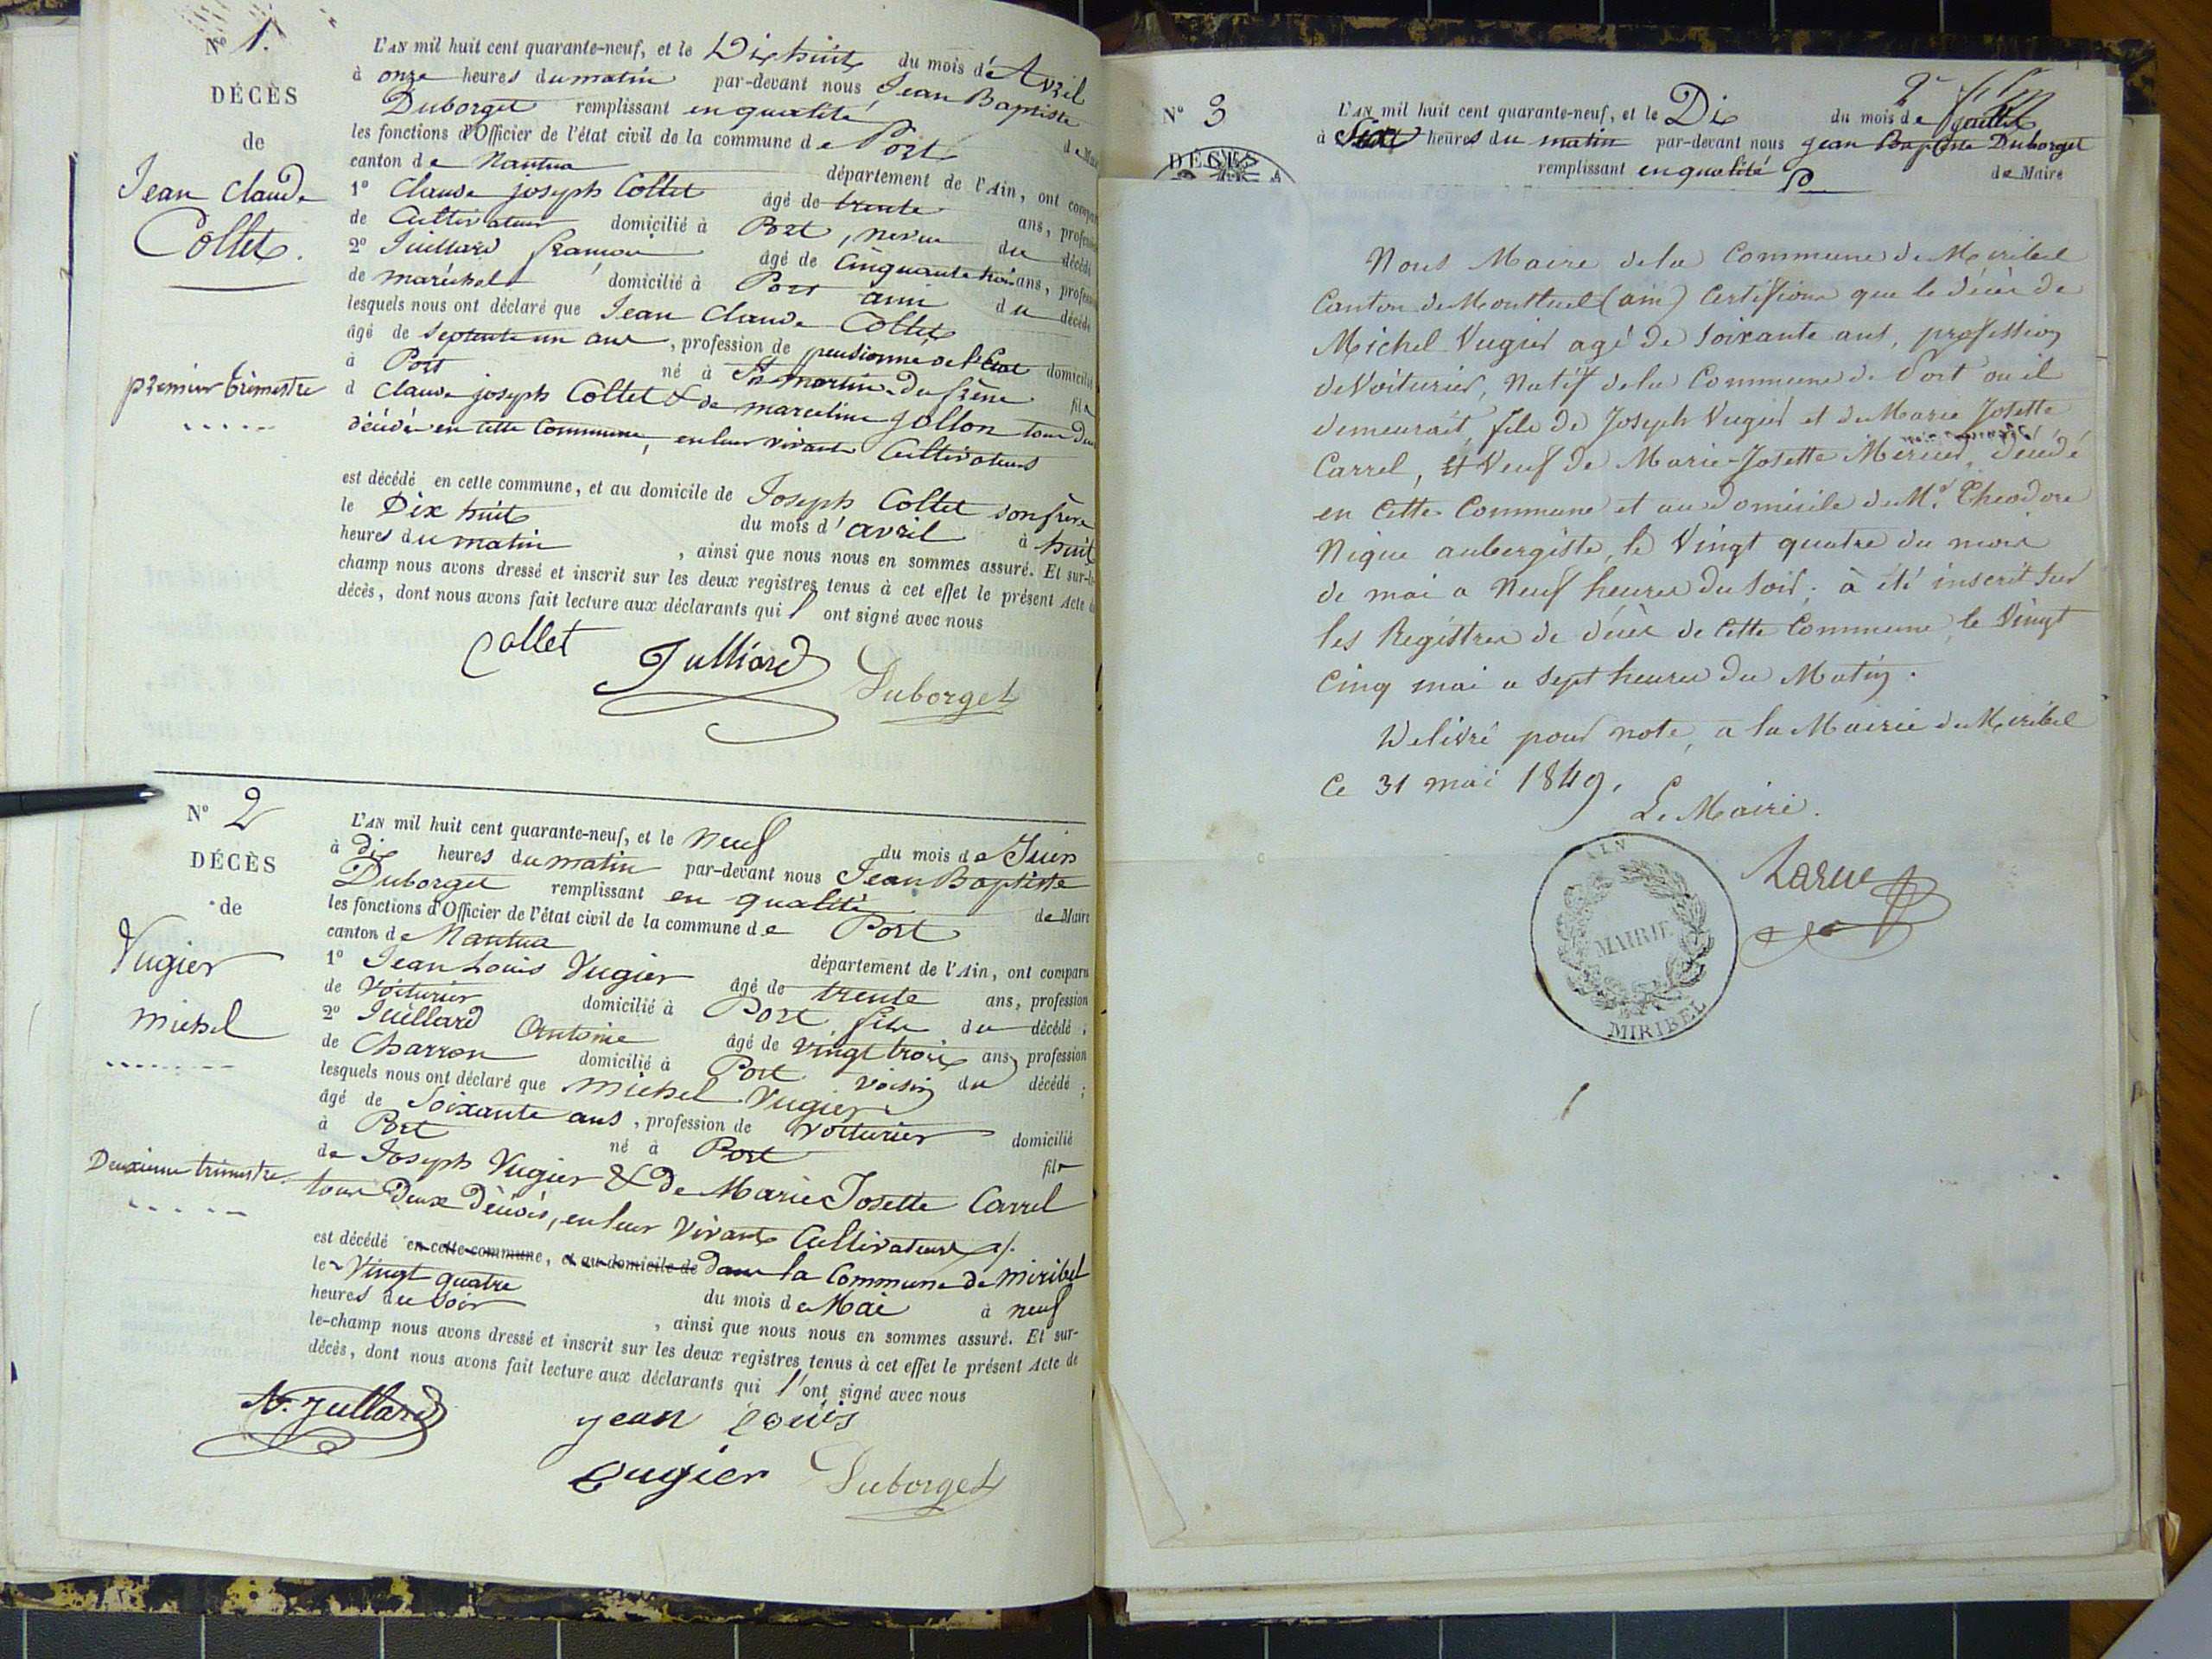 Nº 1.
DÉCÈS
de
Jean Claude
Collet.
premier trimestre
L'AN mil huit cent quarante-neuf, et le Dix huit du mois d'Avril
à onze heures du matin par-devant nous Jean Baptiste
Duborget remplissant en qualité de Mai
les fonctions d'Officier de l'état civil de la commune de Port
canton de Nantua département de l'Ain, ont compar
1º Claude joseph Collet âgé de trente ans, profession
de Cultivateur domicilié à Port, neveu du décédé
2º Juillard françois âgé de Cinquante trois ans, profession
de maréchal domicilié à Port ami du décédé
lesquels nous ont déclaré que Jean Claude Collet
âgé de septente un ans, profession de pensionné de l'État domicilié
à Port né à St martin du frène fils
d Claude joseph Collet & de marceline Jollon tous deux
décédés en cette Commune, en leur vivant Cultivateurs
est décédé en cette commune, et au domicile de Joseph Collet son frère
le Dix huit du mois d'avril à huit
heures du matin, ainsi que nous nous en sommes assuré. Et sur-le-
champ nous avons dressé et inscrit sur les deux registres tenus à cet effet le présent Acte de
décès, dont nous avons fait lecture aux déclarants qui l'ont signé avec nous
Collet Julliard Duborget
Nº 2
DÉCÈS
de
Vugier
michel
Deuxieme trimestre
L'AN mil huit cent quarante-neuf, et le neuf du mois de Juin
à dix heures du matin par-devant nous Jean Baptiste
Duborget remplissant en qualité de Maire
les fonctions d'Officier de l'état civil de la commune de Port
canton de Nantua département de l'Ain, ont comparu
1º Jean Louis Vugier âgé de trente ans, profession
de Voiturier domicilié à Port fils du décédé;
2º Juillard Antoine âgé de vingt trois ans, profession
de Charron domicilié à Port voisin du décédé;
lesquels nous ont déclaré que michel Vugier
âgé de Soixante ans, profession de voiturier domicilié
à Port né à Port fils
de Joseph Vugier & de Marie Josette Carrel
tous Deux décédés, en leur vivant Cultivateurs
est décédé en cette commune, et au domicile de dans la Commune de miribel
le Vingt quatre du mois de Mai à neuf
heures du soir, ainsi que nous nous en sommes assuré. Et sur-
le-champ nous avons dressé et inscrit sur les deux registres tenus à cet effet le présent Acte de
décès, dont nous avons fait lecture aux déclarants qui l'ont signé avec nous
A. Jullard jean louis
vugier Duborget
Nº 3
DÉCÈS
L'AN mil huit cent quarante-neuf, et le Dix du mois de juillet
à Sept heures du matin par-devant nous jean Baptiste Duborget
remplissant en qualité de Maire
Nous Maire de la Commune de Miribel
Canton de Montluel (ain) Certifions que le décès de
Michel Vugier agé de soixante ans, profession
de Voiturier, Natif de la Commune de Port ou il
demeurait, fils de Joseph Vugier et de Marie Josette
Carrel, et Veuf de Marie-Josette Mercier, décédé
en Cette Commune et au domicile de Mr. Theodore
Nique aubergiste, le Vingt quatre du mois
de mai a Neuf heures du soir; à été inscrit sur
les Registres de décès de Cette Commune, le Vingt
Cinq mai a sept heures du Matin.
Delivré pour note, a la Mairie de Miribel
Ce 31 mai 1849.
Le Maire.
Larue
AIN
MAIRIE
MIRIBEL